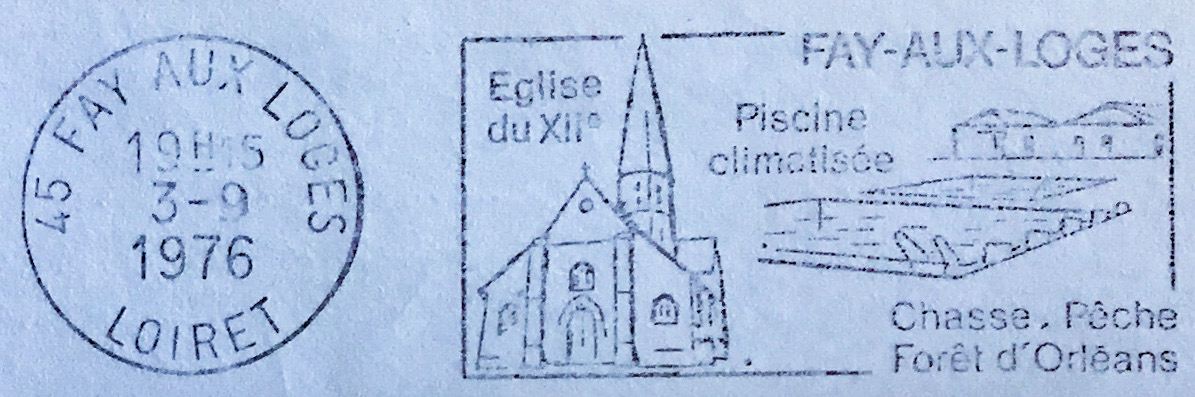 45 FAY AUX LOGES
19H15
3-9
1976
LOIRET
FAY-AUX-LOGES
Eglise
du XIIe
Piscine
climatisée
Chasse. Pêche
Forêt d'Orléans